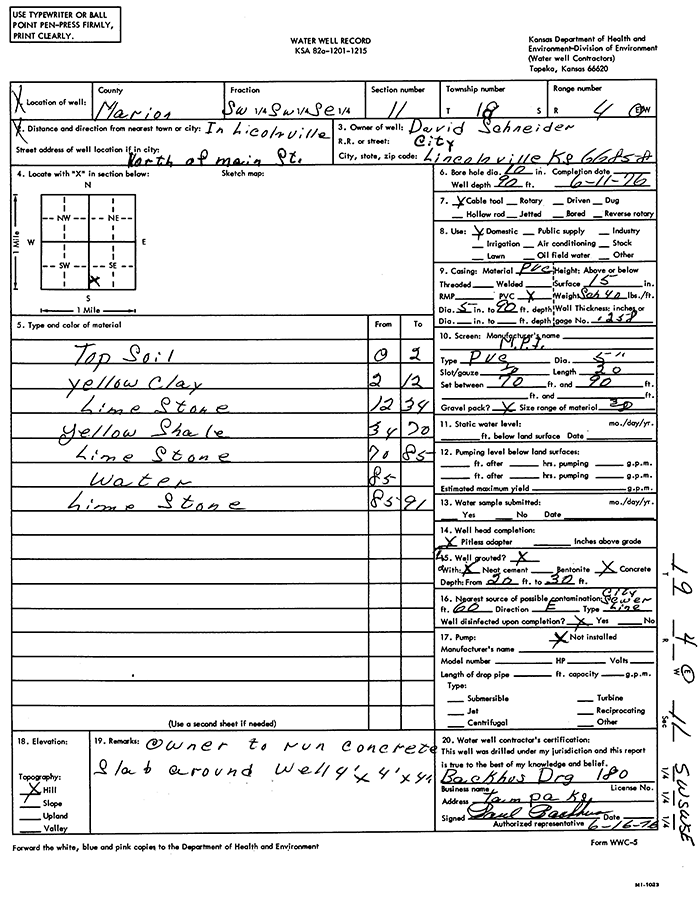 USE TYPEWRITER OR BALL
POINT PEN-PRESS FIRMLY,
PRINT CLEARLY.
WATER WELL RECORD
KSA 82a-1201-1215
Kansas Department of Health and
Environment-Division of Environment
(Water well Contractors)
Topeka, Kansas 66620
1. Location of well: County Marion Fraction SW 1/4 SW 1/4 SE 1/4 Section number 11 Township number T 18 S Range number R 4 E/W
2. Distance and direction from nearest town or city: In Licolnville
Street address of well location if in city: North of main St.
3. Owner of well: David Schneider
R.R. or street: City
City, state, zip code: Lincolnville Ks 66858
4. Locate with "X" in section below: Sketch map:
N
NW NE
W E
SW SE
X
S
1 Mile
1 Mile
6. Bore hole dia. 10 in. Completion date 6-11-76
Well depth 90 ft.
7. X Cable tool Rotary Driven Dug
Hollow rod Jetted Bored Reverse rotary
8. Use: X Domestic Public supply Industry
Irrigation Air conditioning Stock
Lawn Oil field water Other
9. Casing: Material PVC Height: Above or below
Threaded Welded Surface 15 in.
RMP PVC X Weight Sch 40 lbs./ft.
Dia. 5 in. to 90 ft. depth Wall Thickness: inches or
Dia. in. to ft. depth gage No. .258
5. Type and color of material From To
Top Soil 0 2
yellow Clay 2 12
Lime Stone 12 34
yellow Shale 34 70
Lime Stone 70 85
Water 85
Lime Stone 85 91
(Use a second sheet if needed)
10. Screen: Manufacturer's name
Type PVC Dia. 5"
Slot/gauze Length 20
Set between 70 ft. and 90 ft.
ft. and ft.
Gravel pack? X Size range of material
11. Static water level: mo./day/yr.
ft. below land surface Date
12. Pumping level below land surfaces:
ft. after hrs. pumping g.p.m.
ft. after hrs. pumping g.p.m.
Estimated maximum yield g.p.m.
13. Water sample submitted: mo./day/yr.
Yes No Date
14. Well head completion:
X Pitless adapter Inches above grade
15. Well grouted? X
With: X Neat cement Bentonite X Concrete
Depth: From 20 ft. to 30 ft.
16. Nearest source of possible contamination: City Sewer
ft. 60 Direction E Type Line
Well disinfected upon completion? X Yes No
17. Pump: X Not installed
Manufacturer's name
Model number HP Volts
Length of drop pipe ft. capacity g.p.m.
Type:
Submersible Turbine
Jet Reciprocating
Centrifugal Other
18. Elevation:
Topography:
X Hill
Slope
Upland
Valley
19. Remarks: Owner to run concrete
Slab around Well 4' x 4' x 4"
20. Water well contractor's certification:
This well was drilled under my jurisdiction and this report
is true to the best of my knowledge and belief.
Backhus Drg 180
Business name License No.
Address Tampa Ks.
Signed Paul Backhus Date 6-16-76
Authorized representative
Forward the white, blue and pink copies to the Department of Health and Environment
Form WWC-5
MI-1023
T R E W Sec 1/4 1/4 1/4
SWSWSE